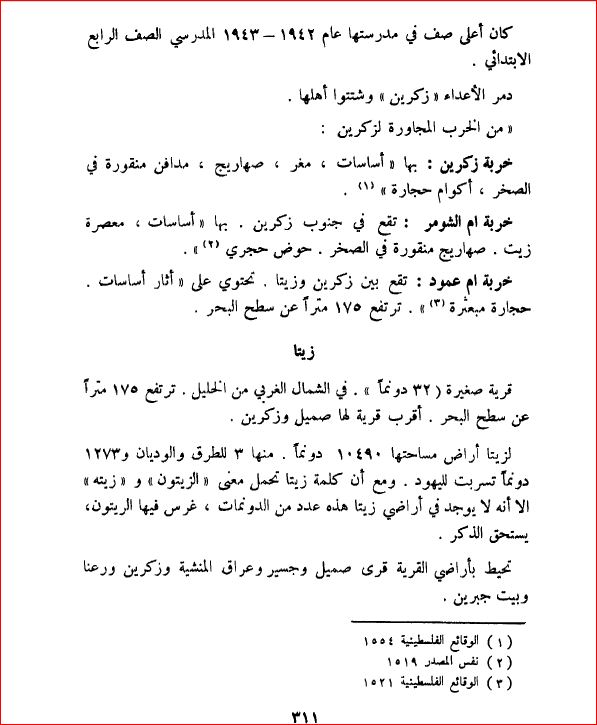 كان أعلى صف في مدرستها عام ١٩٤٢ – ١٩٤٣ المدرسي الصف الرابع
الابتدائي .
دمر الأعداء « زكرين » وشتتوا أهلها .
« من الخرب المجاورة لزكرين :
خربة زكرين : بها « أساسات ، مغر ، صهاريج ، مدافن منقورة في
الصخر ، أكوام حجارة » (١) .
خربة ام الشومر : تقع في جنوب زكرين . بها « أساسات ، معصرة
زيت . صهاريج منقورة في الصخر . حوض حجري (٢) » .
خربة ام عمود : تقع بين زكرين وزيتا . تحتوي على « أثار أساسات .
حجارة مبعثرة (٣) » . ترتفع ١٧٥ متراً عن سطح البحر .
زيتا
قرية صغيرة ( ٣٢ دونماً » . في الشمال الغربي من الخليل . ترتفع ١٧٥ متراً
عن سطح البحر . أقرب قرية لها صميل وزكرين .
لزيتا أراض مساحتها ١٠٤٩٠ دونماً . منها ٣ للطرق والوديان و١٢٧٣
دونماً تسربت لليهود . ومع أن كلمة زيتا تحمل معنى « الزيتون » و « زيته »
الا أنه لا يوجد في أراضي زيتا هذه عدد من الدونمات ، غرس فيها الريتون،
يستحق الذكر .
تحيط بأراضي القرية قرى صميل وجسير وعراق المنشية وزكرين ورعنا
وبيت جبرين .
(١) الوقائع الفلسطينية ١٥٥٤
(٢) نفس المصدر ١٥١٩
(٣) الوقائع الفلسطينية ١٥٢١
٣١١